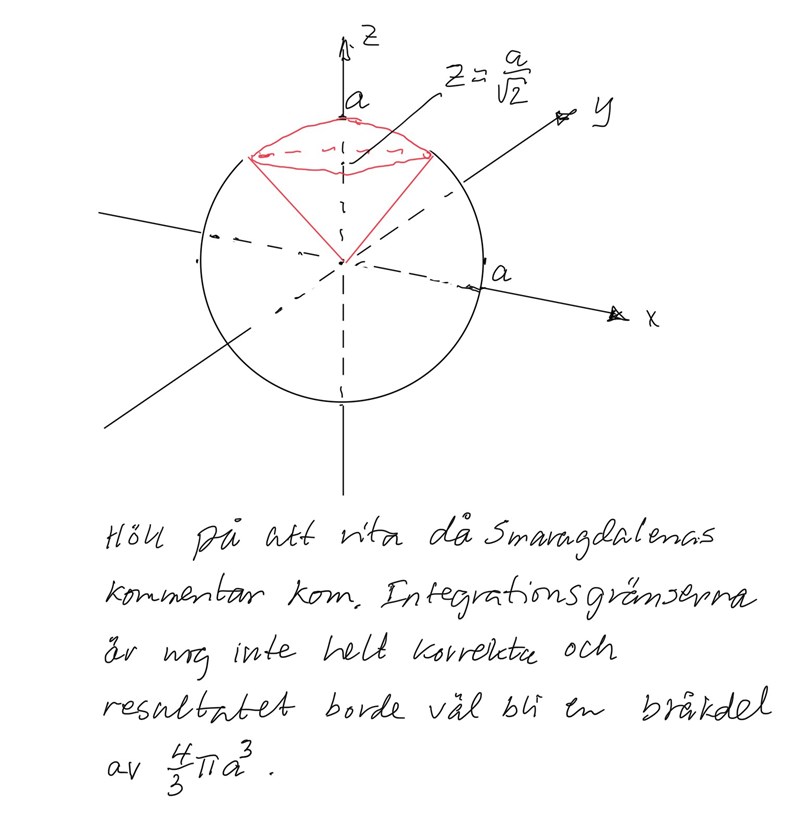 z
z = a/√2
a
y
a
x
Höll på att rita då Smaragdalenas
kommentar kom. Integrationsgränserna
är nog inte helt korrekta och
resultatet borde väl bli en bråkdel
av 4/3 πa³.